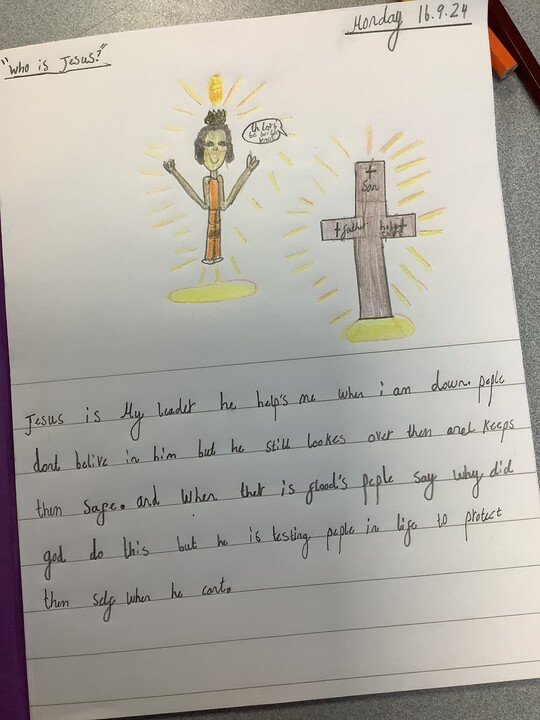 "Who is Jesus?"
Monday 16.9.24
Son
father holy
Jesus is My leader he help's me when i am down. peple
dont belive in him but he still lookes over them and keeps
them safe. and When ther is flood's peple say why did
god do this but he is testing peple in life to protect
them self when he cant.